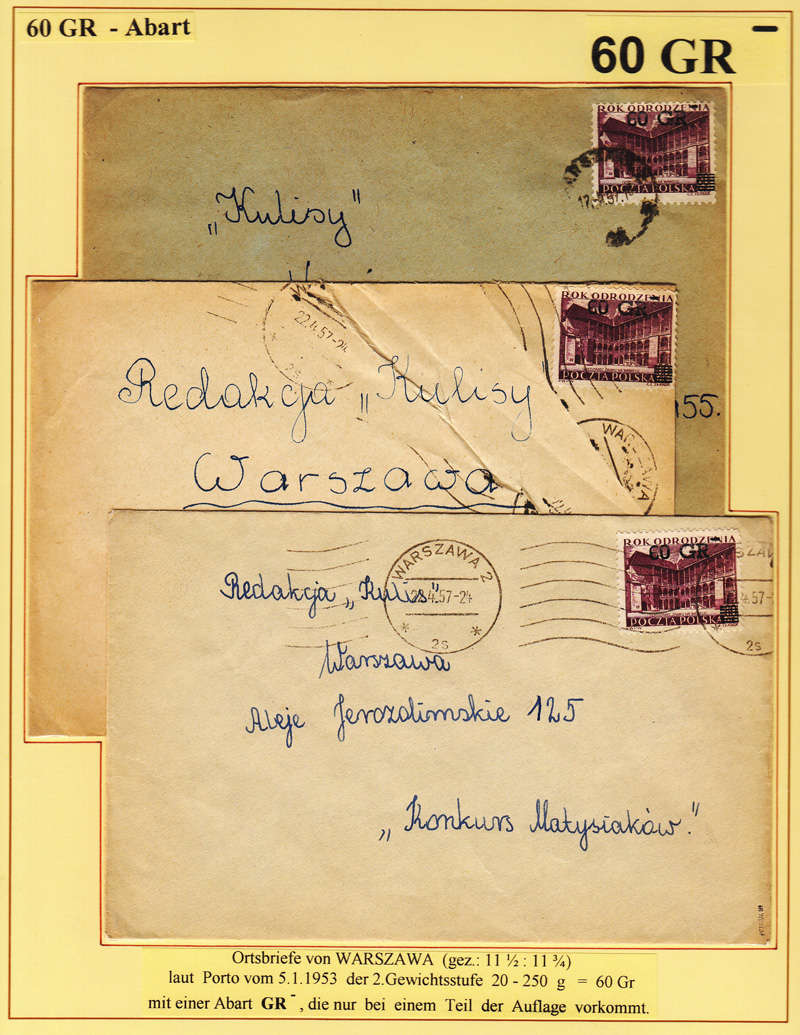 60 GR - Abart
60 GR
ROK ODRODZENIA
60 GR
POCZTA POLSKA
„Kulisy"
ROK ODRODZENIA
60 GR
POCZTA POLSKA
22.4.57-24
2s
Redakcja „Kulisy
155.
WARSZAWA
Warszawa
ROK ODRODZENIA
60 GR
POCZTA POLSKA
WARSZAWA 2
22.4.57-24
* 2s *
2s
Redakcja „Kulisy"
Warszawa
Aleje Jerozolimskie 125
„Konkurs Matysiaków."
Ortsbriefe von WARSZAWA (gez.: 11 ½ : 11 ¾)
laut Porto vom 5.1.1953 der 2.Gewichtsstufe 20 - 250 g = 60 Gr
mit einer Abart GR ‾ , die nur bei einem Teil der Auflage vorkommt.